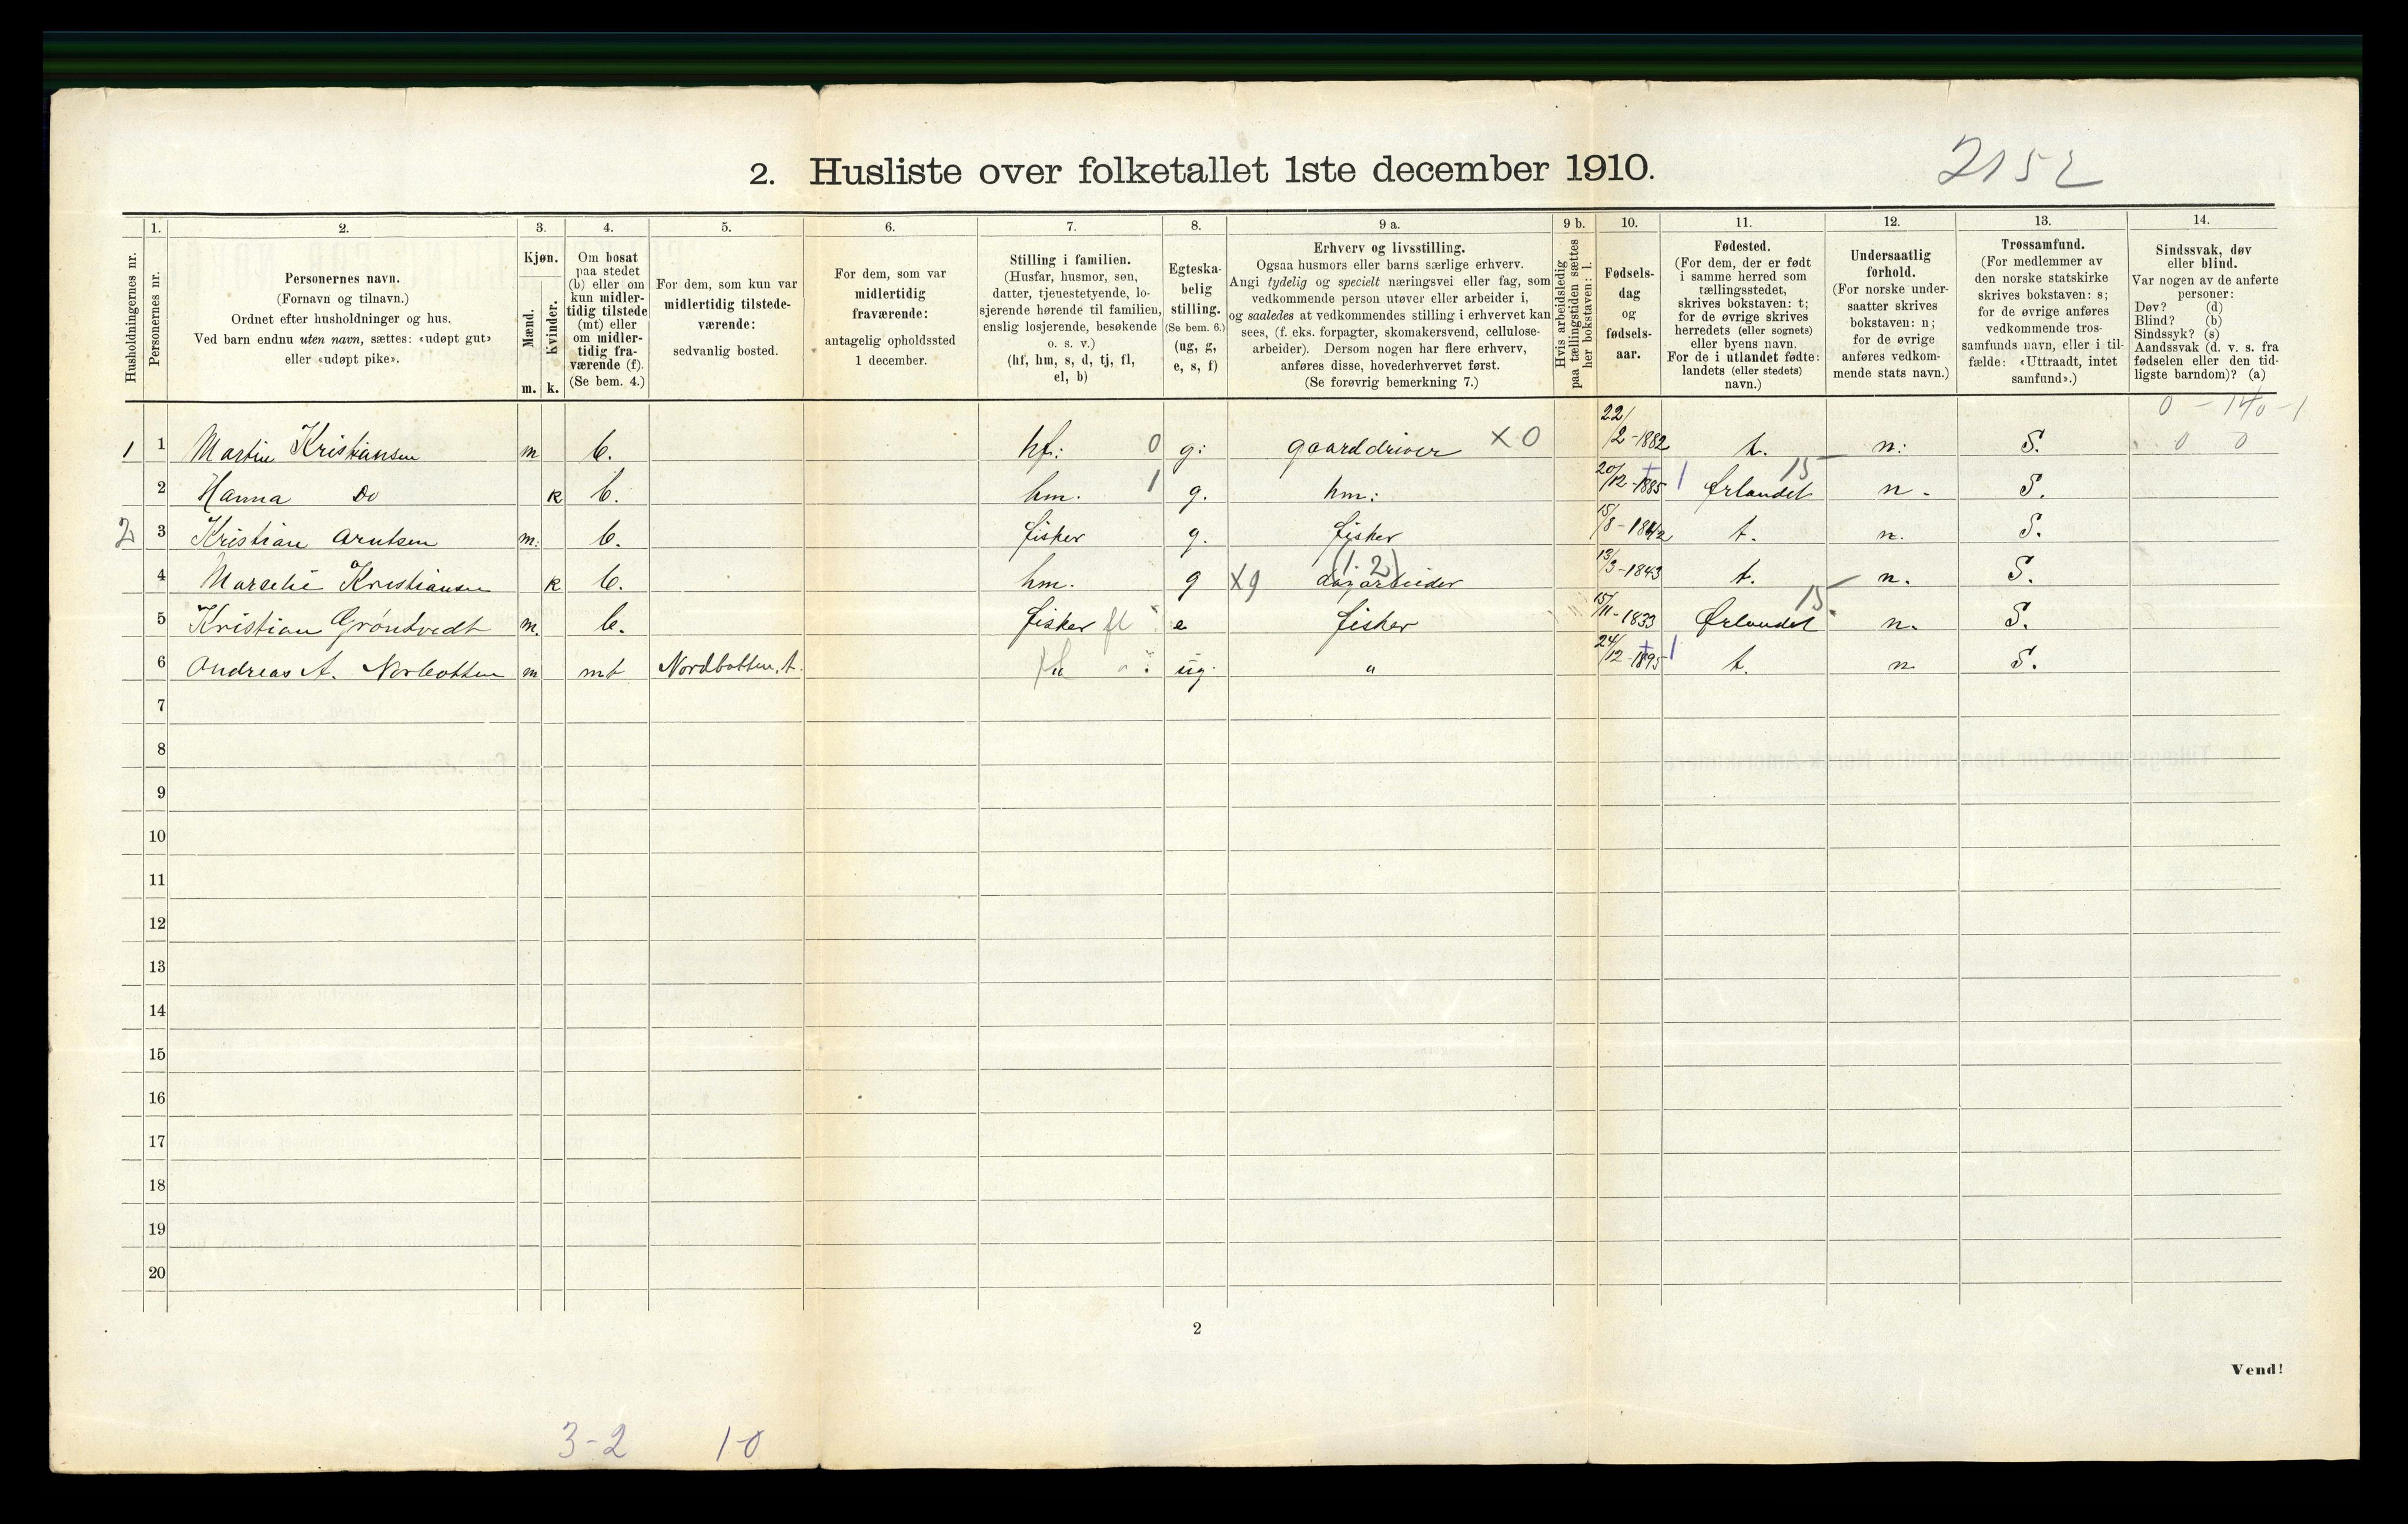 2. Husliste over folketallet 1ste december 1910.
2152
Husholdningernes nr.
1.
Personernes nr.
2.
Personernes navn.
(Fornavn og tilnavn.)
Ordnet efter husholdninger og hus.
Ved barn endnu uten navn, sættes: «udøpt gut»
eller «udøpt pike».
3.
Kjøn.
Mænd.
Kvinder.
m. k.
4.
Om bosat
paa stedet
(b) eller om
kun midler-
tidig tilstede
(mt) eller
om midler-
tidig fra-
værende (f).
(Se bem. 4.)
5.
For dem, som kun var
midlertidig tilstede-
værende:
sedvanlig bosted.
6.
For dem, som var
midlertidig
fraværende:
antagelig opholdssted
1 december.
7.
Stilling i familien.
(Husfar, husmor, søn,
datter, tjenestetyende, lo-
sjerende hørende til familien,
enslig losjerende, besøkende
o. s. v.)
(hf, hm, s, d, tj, fl,
el, b)
8.
Egteska-
belig
stilling.
(Se bem. 6.)
(ug, g,
e, s, f)
9 a.
Erhverv og livsstilling.
Ogsaa husmors eller barns særlige erhverv.
Angi tydelig og specielt næringsvei eller fag, som
vedkommende person utøver eller arbeider i,
og saaledes at vedkommendes stilling i erhvervet kan
sees, (f. eks. forpagter, skomakersvend, cellulose-
arbeider). Dersom nogen har flere erhverv,
anføres disse, hovederhvervet først.
(Se forøvrig bemerkning 7.)
9 b.
Hvis arbeidsledig
paa tællingstiden sættes
her bokstaven: l.
10.
Fødsels-
dag
og
fødsels-
aar.
11.
Fødested.
(For dem, der er født
i samme herred som
tællingsstedet,
skrives bokstaven: t;
for de øvrige skrives
herredets (eller sognets)
eller byens navn.
For de i utlandet fødte:
landets (eller stedets)
navn.)
12.
Undersaatlig
forhold.
(For norske under-
saatter skrives
bokstaven: n;
for de øvrige
anføres vedkom-
mende stats navn.)
13.
Trossamfund.
(For medlemmer av
den norske statskirke
skrives bokstaven: s;
for de øvrige anføres
vedkommende tros-
samfunds navn, eller i til-
fælde: «Uttraadt, intet
samfund».)
14.
Sindssvak, døv
eller blind.
Var nogen av de anførte
personer:
Døv? (d)
Blind? (b)
Sindssyk? (s)
Aandssvak (d. v. s. fra
fødselen eller den tid-
ligste barndom)? (a)
1 1 Martin Kristiansen m b. hf: 0 g: gaarddriver X 0 22/2-1882 t. n: S. 0 0
2 Hanna Do k b. hm. 1 g. hm: 20/12-1885 1 Ørlandet 15 n. S.
2 3 Kristian Arntsen m: b. fisker g. fisker t. n. S.
4 Marselie Kristiansen k b. hm. g X9 dagarbeider (1.2) 13/3-1843 t. n. S.
5 Kristian Gröntvedt m. b. fisker fl e fisker 15/11-1833 Ørlandet 15 n. S.
6 Andreas A. Norbotten m mt Nordbotten, t. " ug. " 24/12-1895 1 t. n S.
7
8
9
10
11
12
13
14
15
16
17
18
19
20
2
Vend!
3-2 1-0